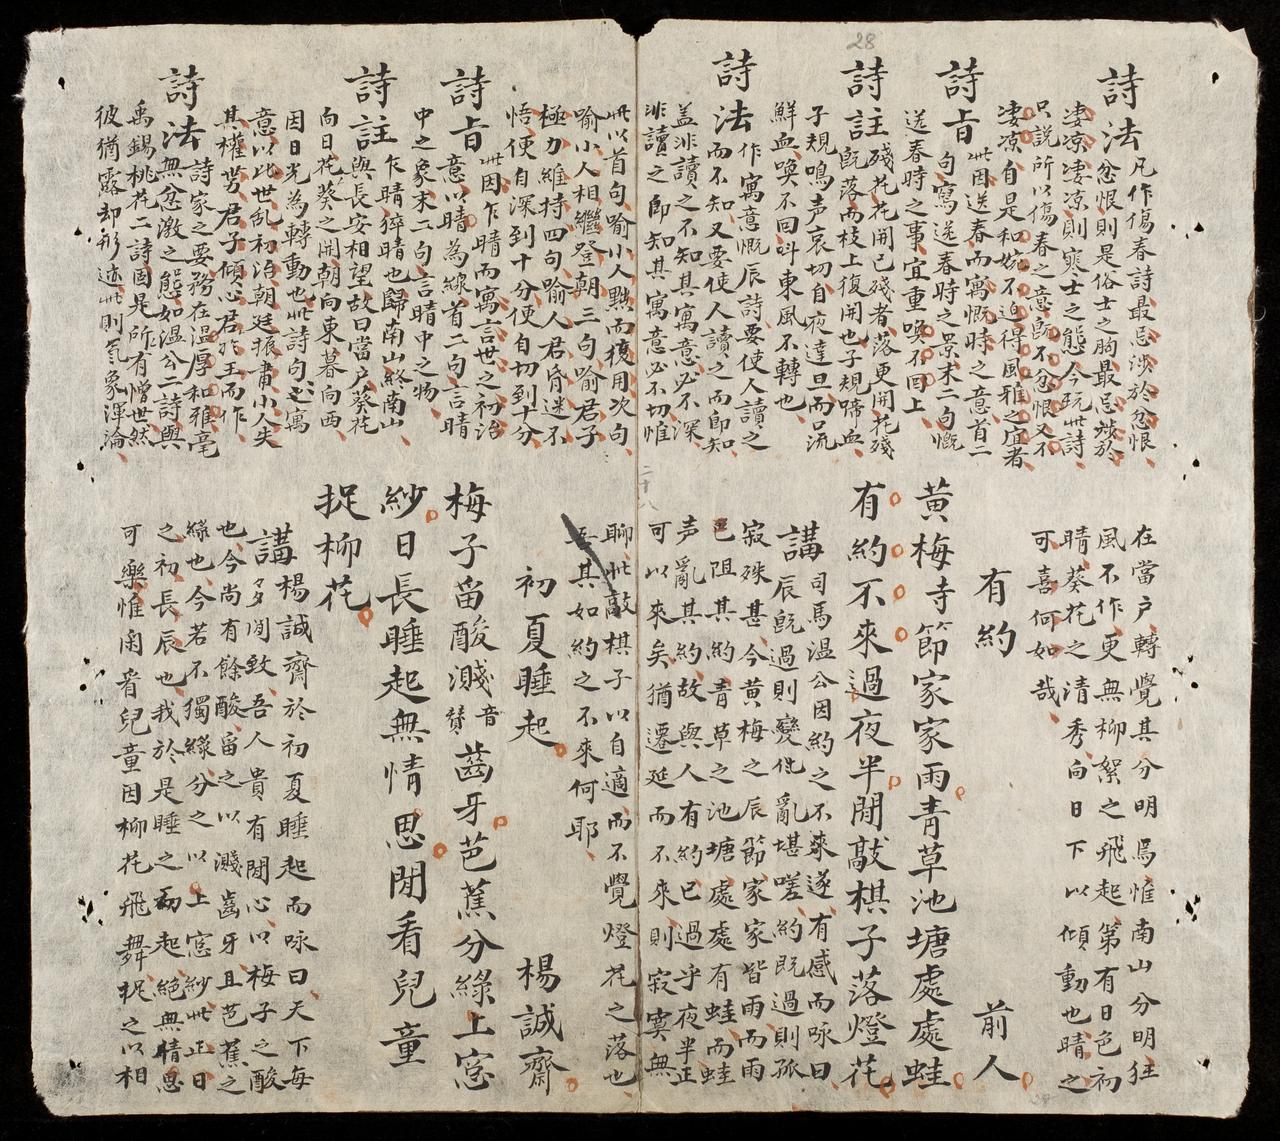 28
詩法凡作傷春詩最忌涉於忿恨
忿恨則是俗士之胸最忌涉於
淒凉淒凉則寒士之態今玩此詩
只説所以傷春之意既不忿恨又不
淒凉自是和婉不迫得風雅之宜者
詩旨此因送春而寓慨時之意首二
句寫送春時之景末二句慨
送春時之事宜重喚不回上
詩註殘花花開已殘者落更開花殘
既落而枝上復開也子規啼血
子規鳴声哀切自夜達旦而口流
鮮血喚不回呌東風不轉也
詩法作寓意慨辰詩要使人讀之
而不知又要使人讀之而即知
盖非讀之不知其寓意必不深
非讀之即知其寓意必不切惟
在當户轉覺其分明焉惟南山分明狂
風不作更無柳絮之飛起第有日色初
晴葵花之清秀向日下以傾動也晴之
可喜何如哉
有約 前人
黄梅寺節家家雨青草池塘處處蛙
有約不來過夜半閒敲棋子落燈花
講司馬温公因約之不來遂有感而咏曰
辰既過則變化亂堪嗟約既過則孤
寂殊甚今黄梅之辰節家家皆雨而雨
已阻其約青草之池塘處處有蛙而蛙
声亂其約故與人有約已過乎夜半正
可以來矣猶遷延而不來則寂寞無
二十八
此以首句喻小人黜而復用次句
喻小人相繼登朝三句喻君子
極力維持四句喻人君昏迷不
悟使自深到十分使自切到十分
詩旨此因乍晴而寓言世之初治
意以晴為線首二句言晴
中之象末二句言晴中之物
詩註乍晴猝晴也歸南山終南山
與長安相望故曰當户葵花
向日花葵之開朝向東暮向西
因日光為轉動也此詩句之寓
意以比世乱初治朝廷振肅小人失
其權勞君子傾心君於王而作
詩法詩家之要務在温厚和雅毫
無忿激之態如温公二詩與
禹錫桃花二詩固是所有憎世然
彼猶露却形迹此則氣象渾淪
聊此敲棋子以自適而不覺燈花之落也
吾其如約之不來何耶
初夏睡起 楊誠齋
梅子畱酸濺音賛齒牙芭蕉分緑上窓
紗日長睡起無情思閒看兒童
捉柳花
講楊誠齋於初夏睡起而咏曰天下每
多閒致吾人貴有閒心以梅子之酸
也今尚有餘酸畱之以濺齒牙且芭蕉之
緑也今若不獨緑分之以上窓紗此正日
之初長辰也我於是睡之而起絕無情思
可樂惟閑看兒童因柳花飛舞捉之以相